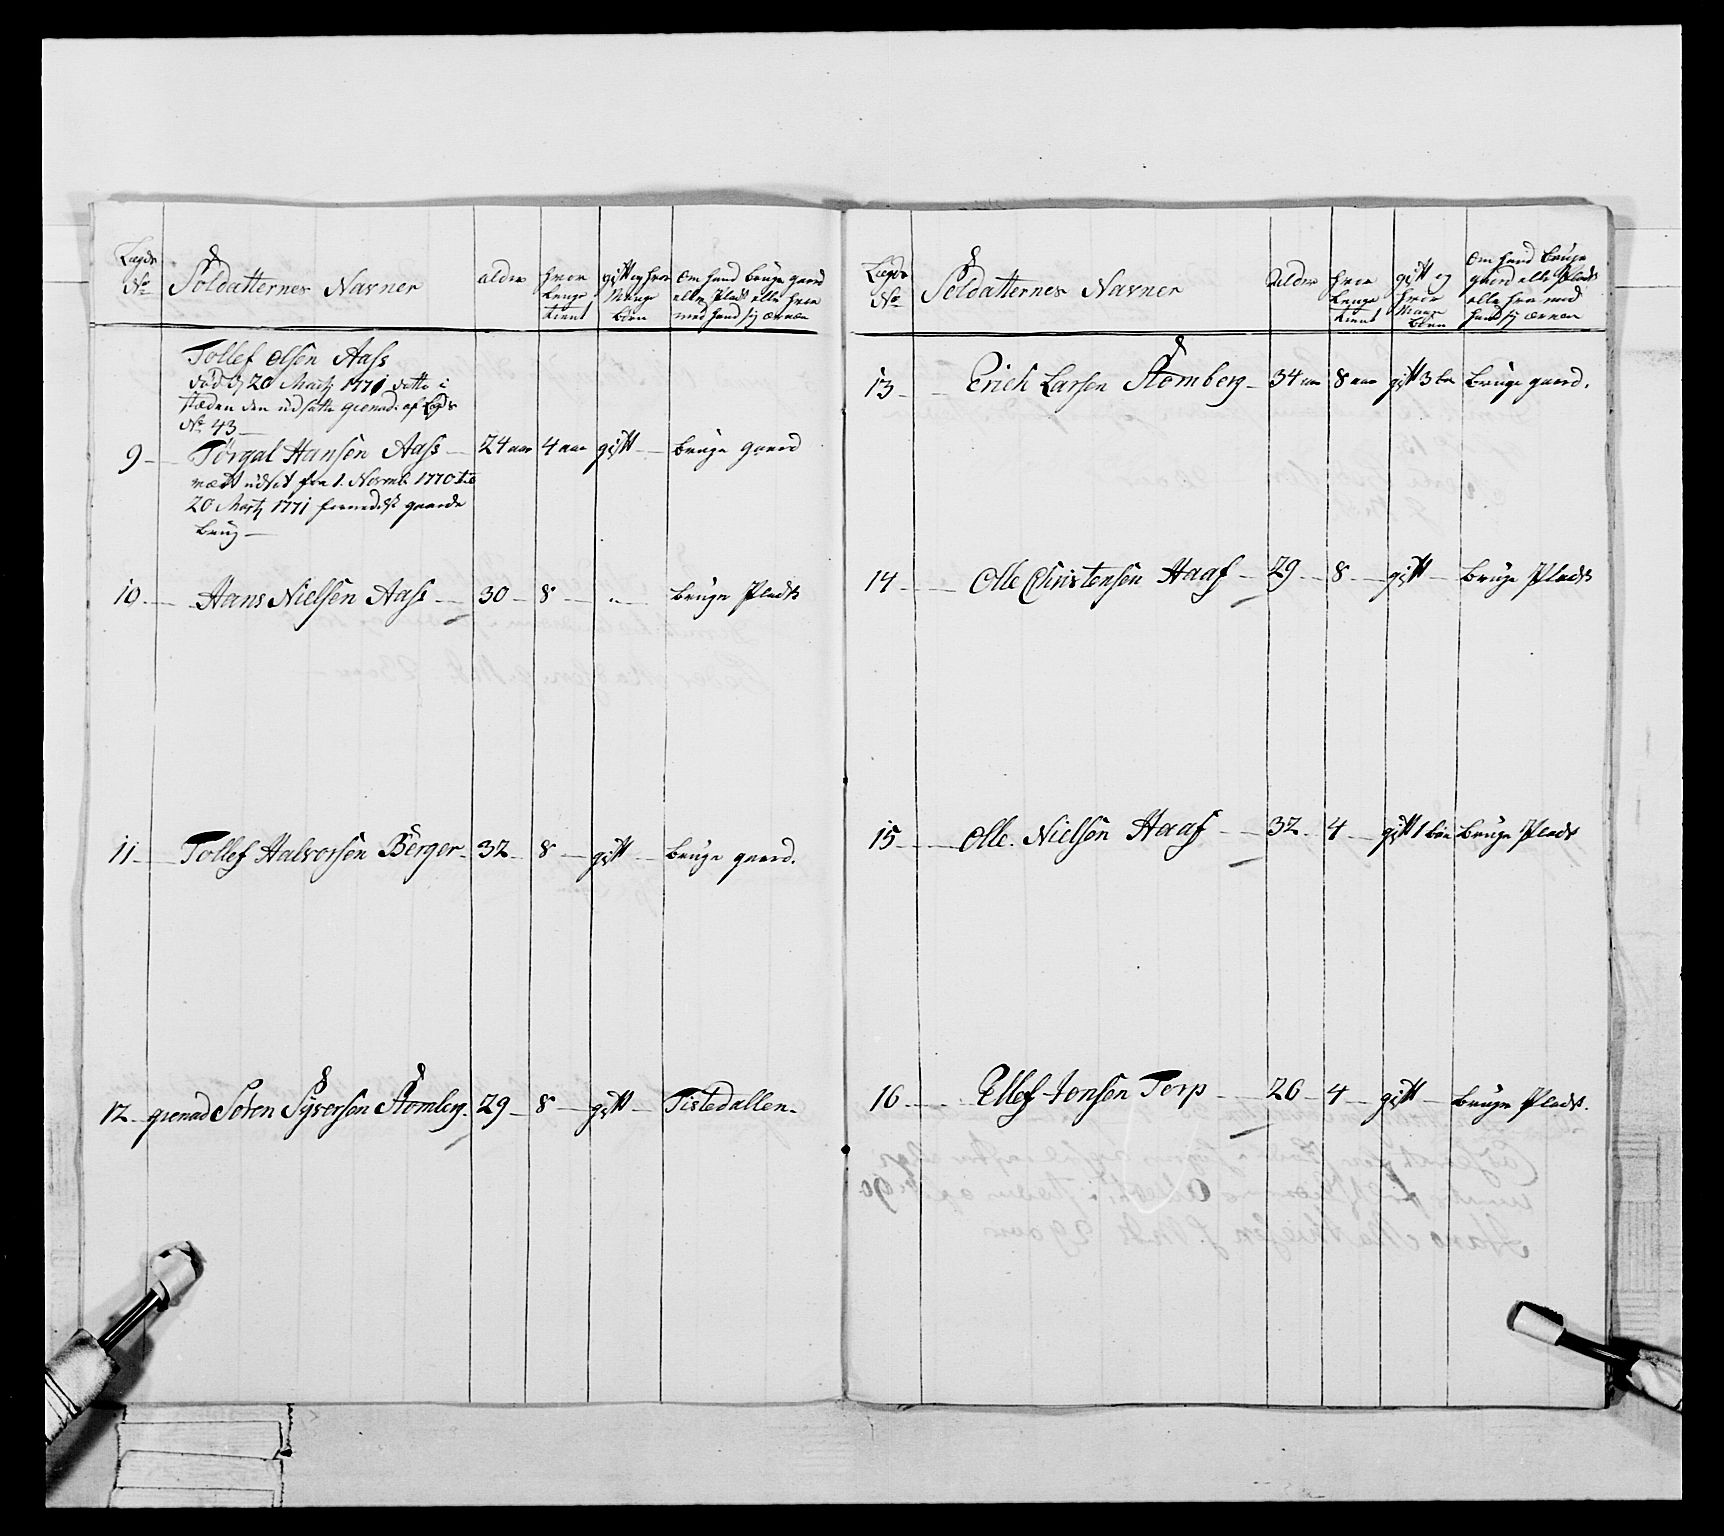 Lægds No Soldatternes Navner alder hvor Lenge tient gift og hvor Mange børn om hand bruge gaard eller Plads eller hvor med hand sig ernær
Tollef olsen Aass
død d 20 Martz 1771 dette i
stæden den udsatte grenad. af Lægds
No 43
9 Törgal Hansen Aass 24 aar 4 aar gift bruge gaard
vært udsat fra 1. Novemb 1770 til
20 Martz 1771 formedelst gaards
brug
10 Hans Nielsen Aass 30 8 " bruge Plads
11 Tollef Halvorsen Berger 32 8 gift bruge gaard.
12 grenad Sören Syversen Stomberg 29 8 gift Tistedallen
Lægds No Soldatternes Navner Alder hvor Lenge tient gift og hvor Mange børn om hand bruge gaard eller Plads eller hvor med hand sig ernær
13 Erich Larsen Stomberg 34 aar 8 aar gift 3 bør bruge gaard.
14 Olle Christensen Haaf 29 8 gift bruge Plads
15 Olle Nielsen Haaf 32 4 gift 1 bør bruge Plads
16 Ellef Jonsen Torp 26 4 gift bruge Plads.